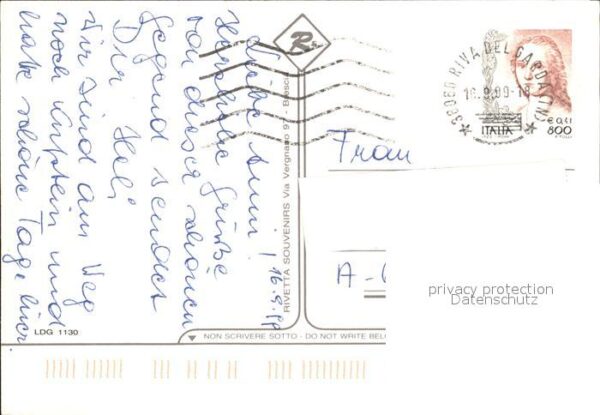 Liebe Anni! 16.9.99
Herzliche Grüße
von dieser schönen
Gegend sendet
Dir Heli
Wir sind am Weg
nach und
habe schöne Tage hier
LDG 1130
RIVETTA SOUVENIRS Via Vergnano 9 - Bresci
R
NON SCRIVERE SOTTO - DO NOT WRITE BEL
38066 RIVA DEL GARDA (TN)
16.9.99-18
ITALIA
€ 0,41
800
Frau
A-
privacy protection
Datenschutz